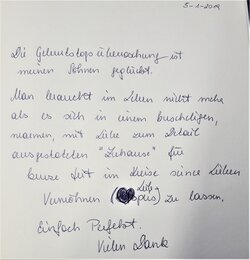 5-1-2019
Die Geburtstagsüberraschung ist
meinen Söhnen geglückt.
Man braucht im Leben nicht mehr
als es sich in einem kuscheligen,
warmen, mit Liebe zum Detail
ausgestatteten "Zuhause" für
kurze Zeit im Kreise seine Lieben
Verwöhnen zu lassen.
Einfach Perfekt.
Vielen Dank